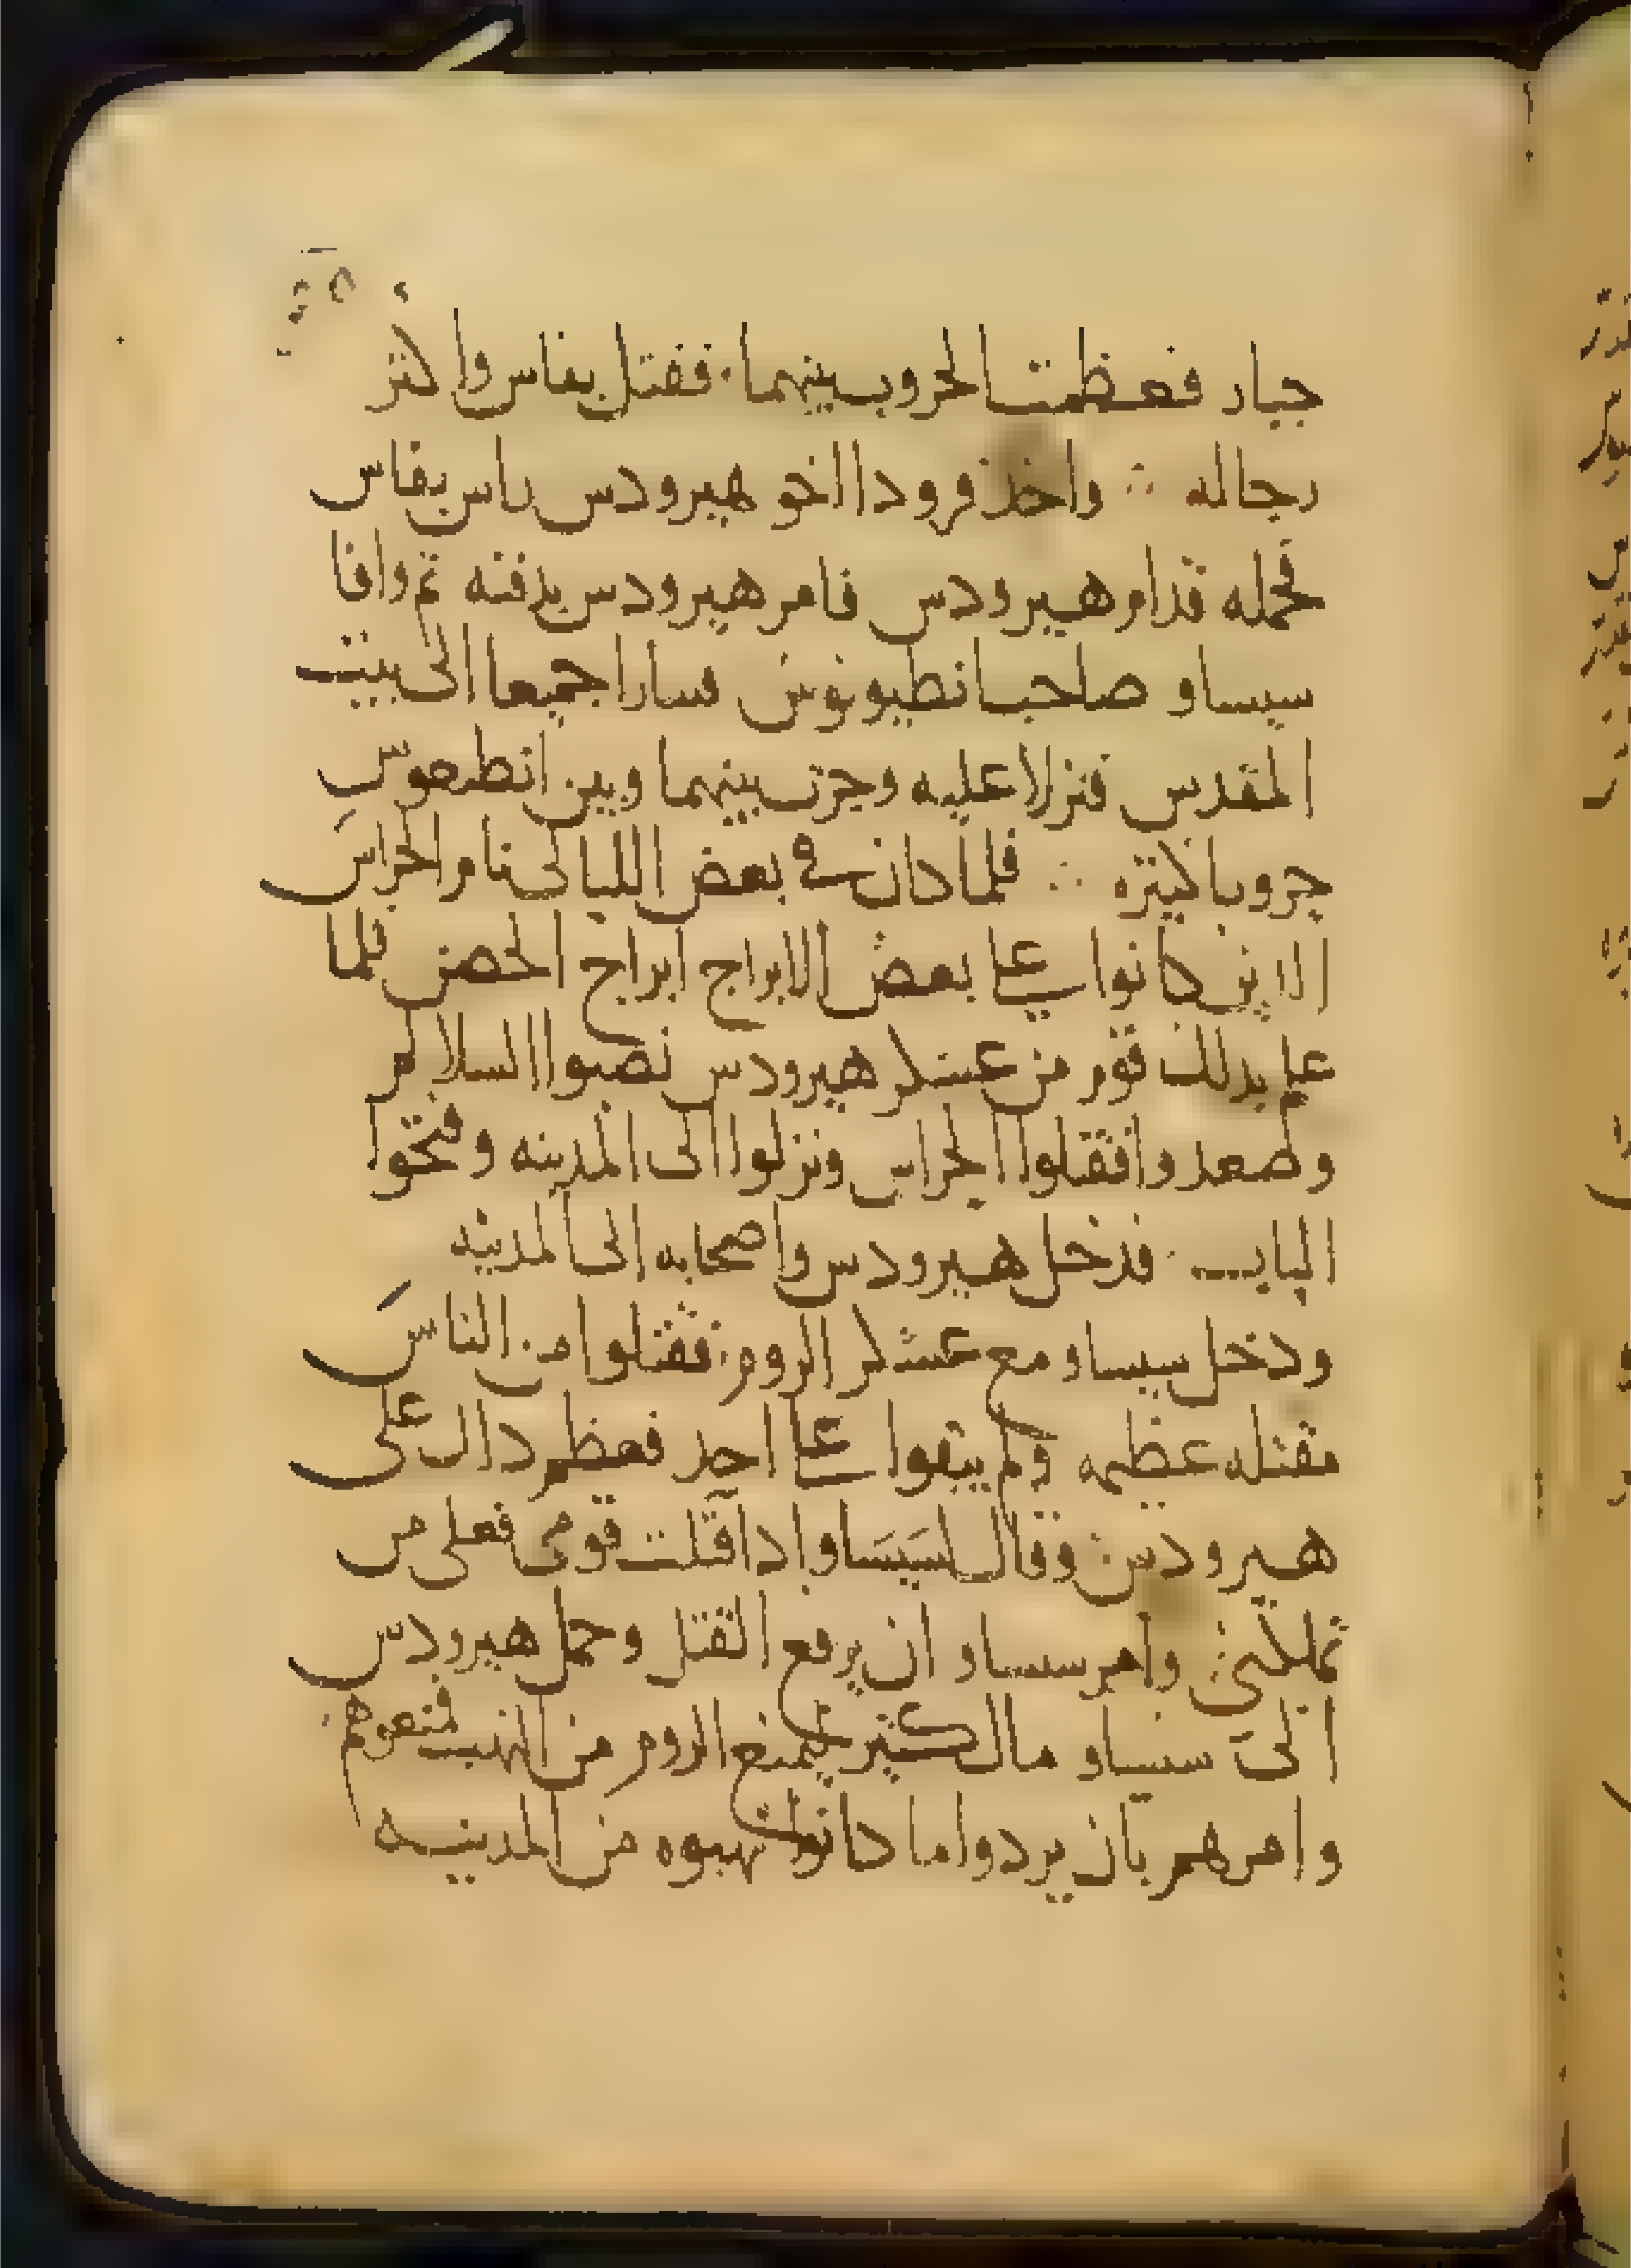 جبار فعظمت الحروب بينهما. فقتل بفاس واكثر
رجاله ∴ واخذ فرودا اخو هيرودس راس بفاس
فحمله قدام هيرودس فامر هيرودس بدفنه ثم وافا
سيساو صاحب انطيونوس فسارا جميعا الى بيت
المقدس فنزلا عليه وجرت بينهما وبين
حروبا كثيره ∴ فلما كان في بعض الليالي نامر الحراس
الدين كانوا علي بعض الابراج ابراج الحصن فلما
علم بدلك قوم من عسكر هيرودس نصبوا السلالم
وطعدوا فقتلوا الحراس ونزلوا الى المدينه وفتحوا
الباب. فدخل هيرودس واصحابه الى المدينه
ودخل سيساو مع عسكر الروم فقتلوا من الناس
مقتله عظيمه ولم يبقوا علي احد فعظم داك على
هيرودس وقال لسيساو ادا قتلت قومى فعلى من
تملكنى وامر سيساو ان يرفع القتل وحمل هيرودس
الى سيساو مال كثير ليمنع الروم من النهب فمنعوهم
وامرهم بان يردوا ما كانوا نهبوه من المدينه